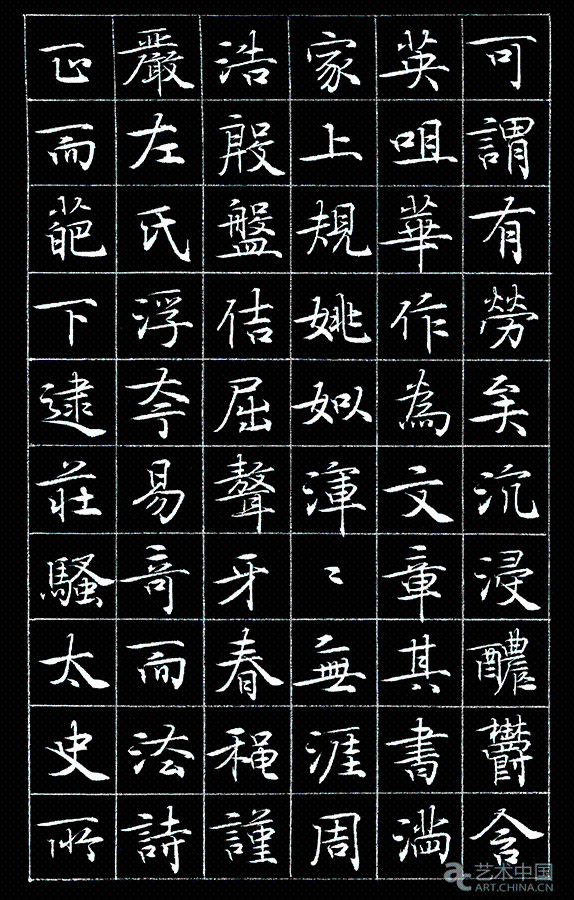 可謂有勞矣沉浸醲鬱含
英咀華作為文章其書滿
家上規姚姒渾〻無涯周
浩殷盤佶屈聱牙春穐謹
嚴左氏浮夸易奇而法詩
正而葩下逮莊騷太史所
艺术中国
ART.CHINA.CN